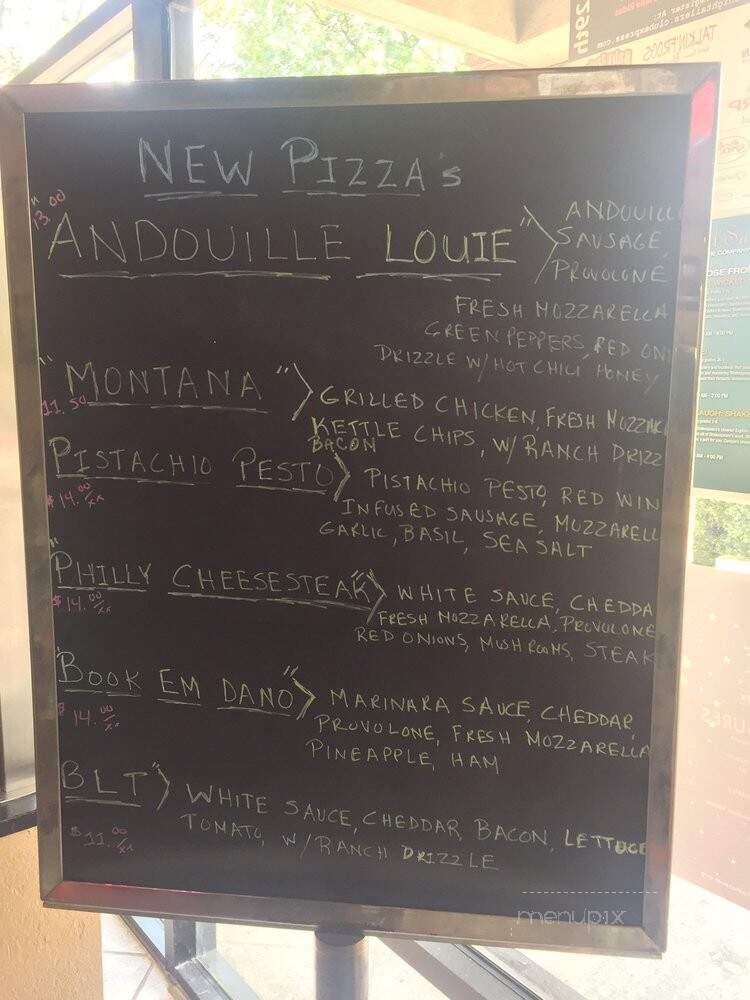 NEW PIZZA's
"
13.00
ANDOUILLE LOUIE" > ANDOUILL
SAUSAGE
PROVOLONE
FRESH MOZZARELLA
GREEN PEPPERS, RED ON
DRIZZLE W/ HOT CHILI HONEY
"MONTANA" > GRILLED CHICKEN, FRESH MOZZAR
11.50
KETTLE CHIPS, W/ RANCH DRIZZ
BACON
PISTACHIO PESTO > PISTACHIO PESTO, RED WIN
$14.00
INFUSED SAUSAGE, MOZZARELL
GARLIC, BASIL, SEA SALT
"PHILLY CHEESESTEAK" > WHITE SAUCE, CHEDDA
$14.00
FRESH MOZZARELLA, PROVOLONE
RED ONIONS, MUSHROOMS, STEAK
"BOOK EM DANO" > MARINARA SAUCE, CHEDDAR
$14.00
PROVOLONE, FRESH MOZZARELLA
PINEAPPLE, HAM
BLT" > WHITE SAUCE, CHEDDAR, BACON, LETTUCE
$11.00
TOMATO, W/ RANCH DRIZZLE
menupix